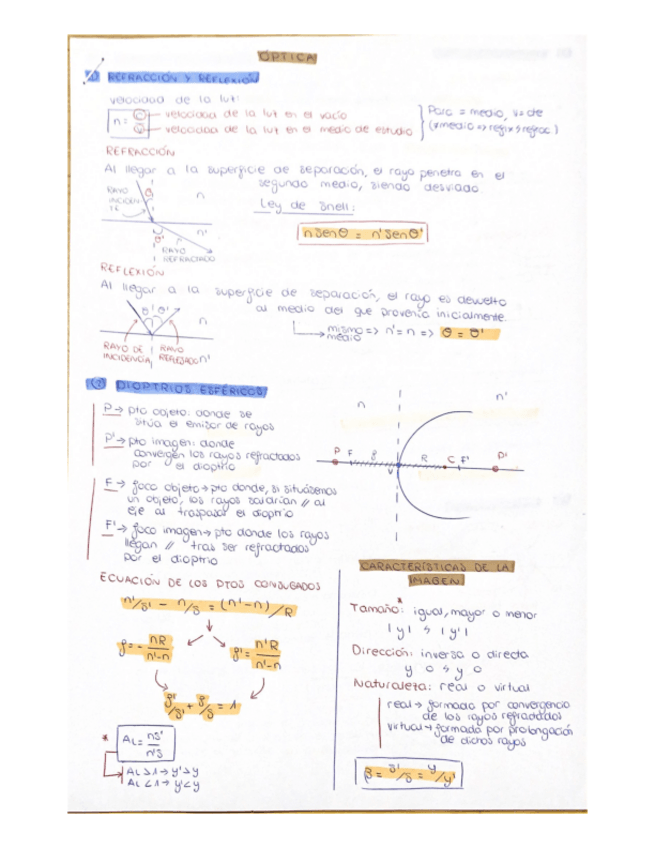 ÓPTICA
① REFRACCIÓN Y REFLEXIÓN
velocidad de la luz:
n = c/v
velocidad de la luz en el vacío
velocidad de la luz en el medio de estudio
Para = medio, v = cte
REFRACCIÓN
Al llegar a la superficie de separación, el rayo penetra en el
segundo medio, siendo desviado
RAYO INCIDENTE
θ
n
Ley de Snell:
n senθ = n' senθ'
n'
θ'
RAYO REFRACTADO
REFLEXIÓN
Al llegar a la superficie de separación, el rayo es devuelto
al medio del que provenía inicialmente.
mismo medio => n' = n => θ = θ'
θ θ'
n
RAYO DE INCIDENCIA
RAYO REFLEJADO
n'
② DIOPTRIOS ESFÉRICOS
P → pto objeto: donde se
sitúa el emisor de rayos
P' → pto imagen: donde
convergen los rayos refractados
por el dioptrio
F → foco objeto → pto donde, si situásemos
un objeto, los rayos saldrían // al
eje al traspasar el dioptrio
F' → foco imagen → pto donde los rayos
llegan // tras ser refractados
por el dioptrio
n
n'
P F f V R C F' P'
ECUACIÓN DE LOS PTOS CONJUGADOS
n'/s' - n/s = (n'-n)/R
f = - nR/n'-n
f' = n'R/n'-n
f'/s' + f/s = 1
* AL = ns'/n's
AL > 1 → y' > y
AL < 1 → y' < y
CARACTERÍSTICAS DE LA
IMAGEN
Tamaño*: igual, mayor o menor
|y| ≶ |y'|
Dirección: inversa o directa
y 0 ≶ y 0
Naturaleza: real o virtual
real → formada por convergencia
de los rayos refractados
virtual → formada por prolongación
de dichos rayos
β = s'/s = y/y'